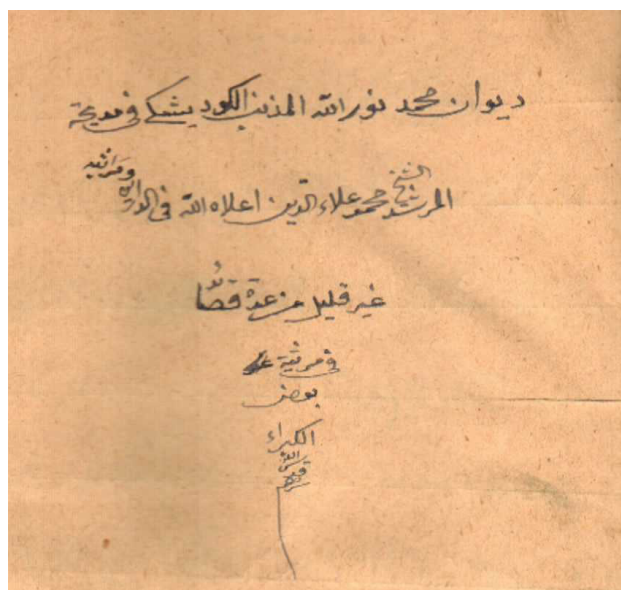 ديوان محمد نور الله المذنب الكورديشكي في مديحة
المرشد الشيخ محمد علاء الدين اعلاه الله في الدارين ومرثيه
غير قليل من عدة قصائد
في مرثية
بعض
الكبراء
قدس الله سرهم